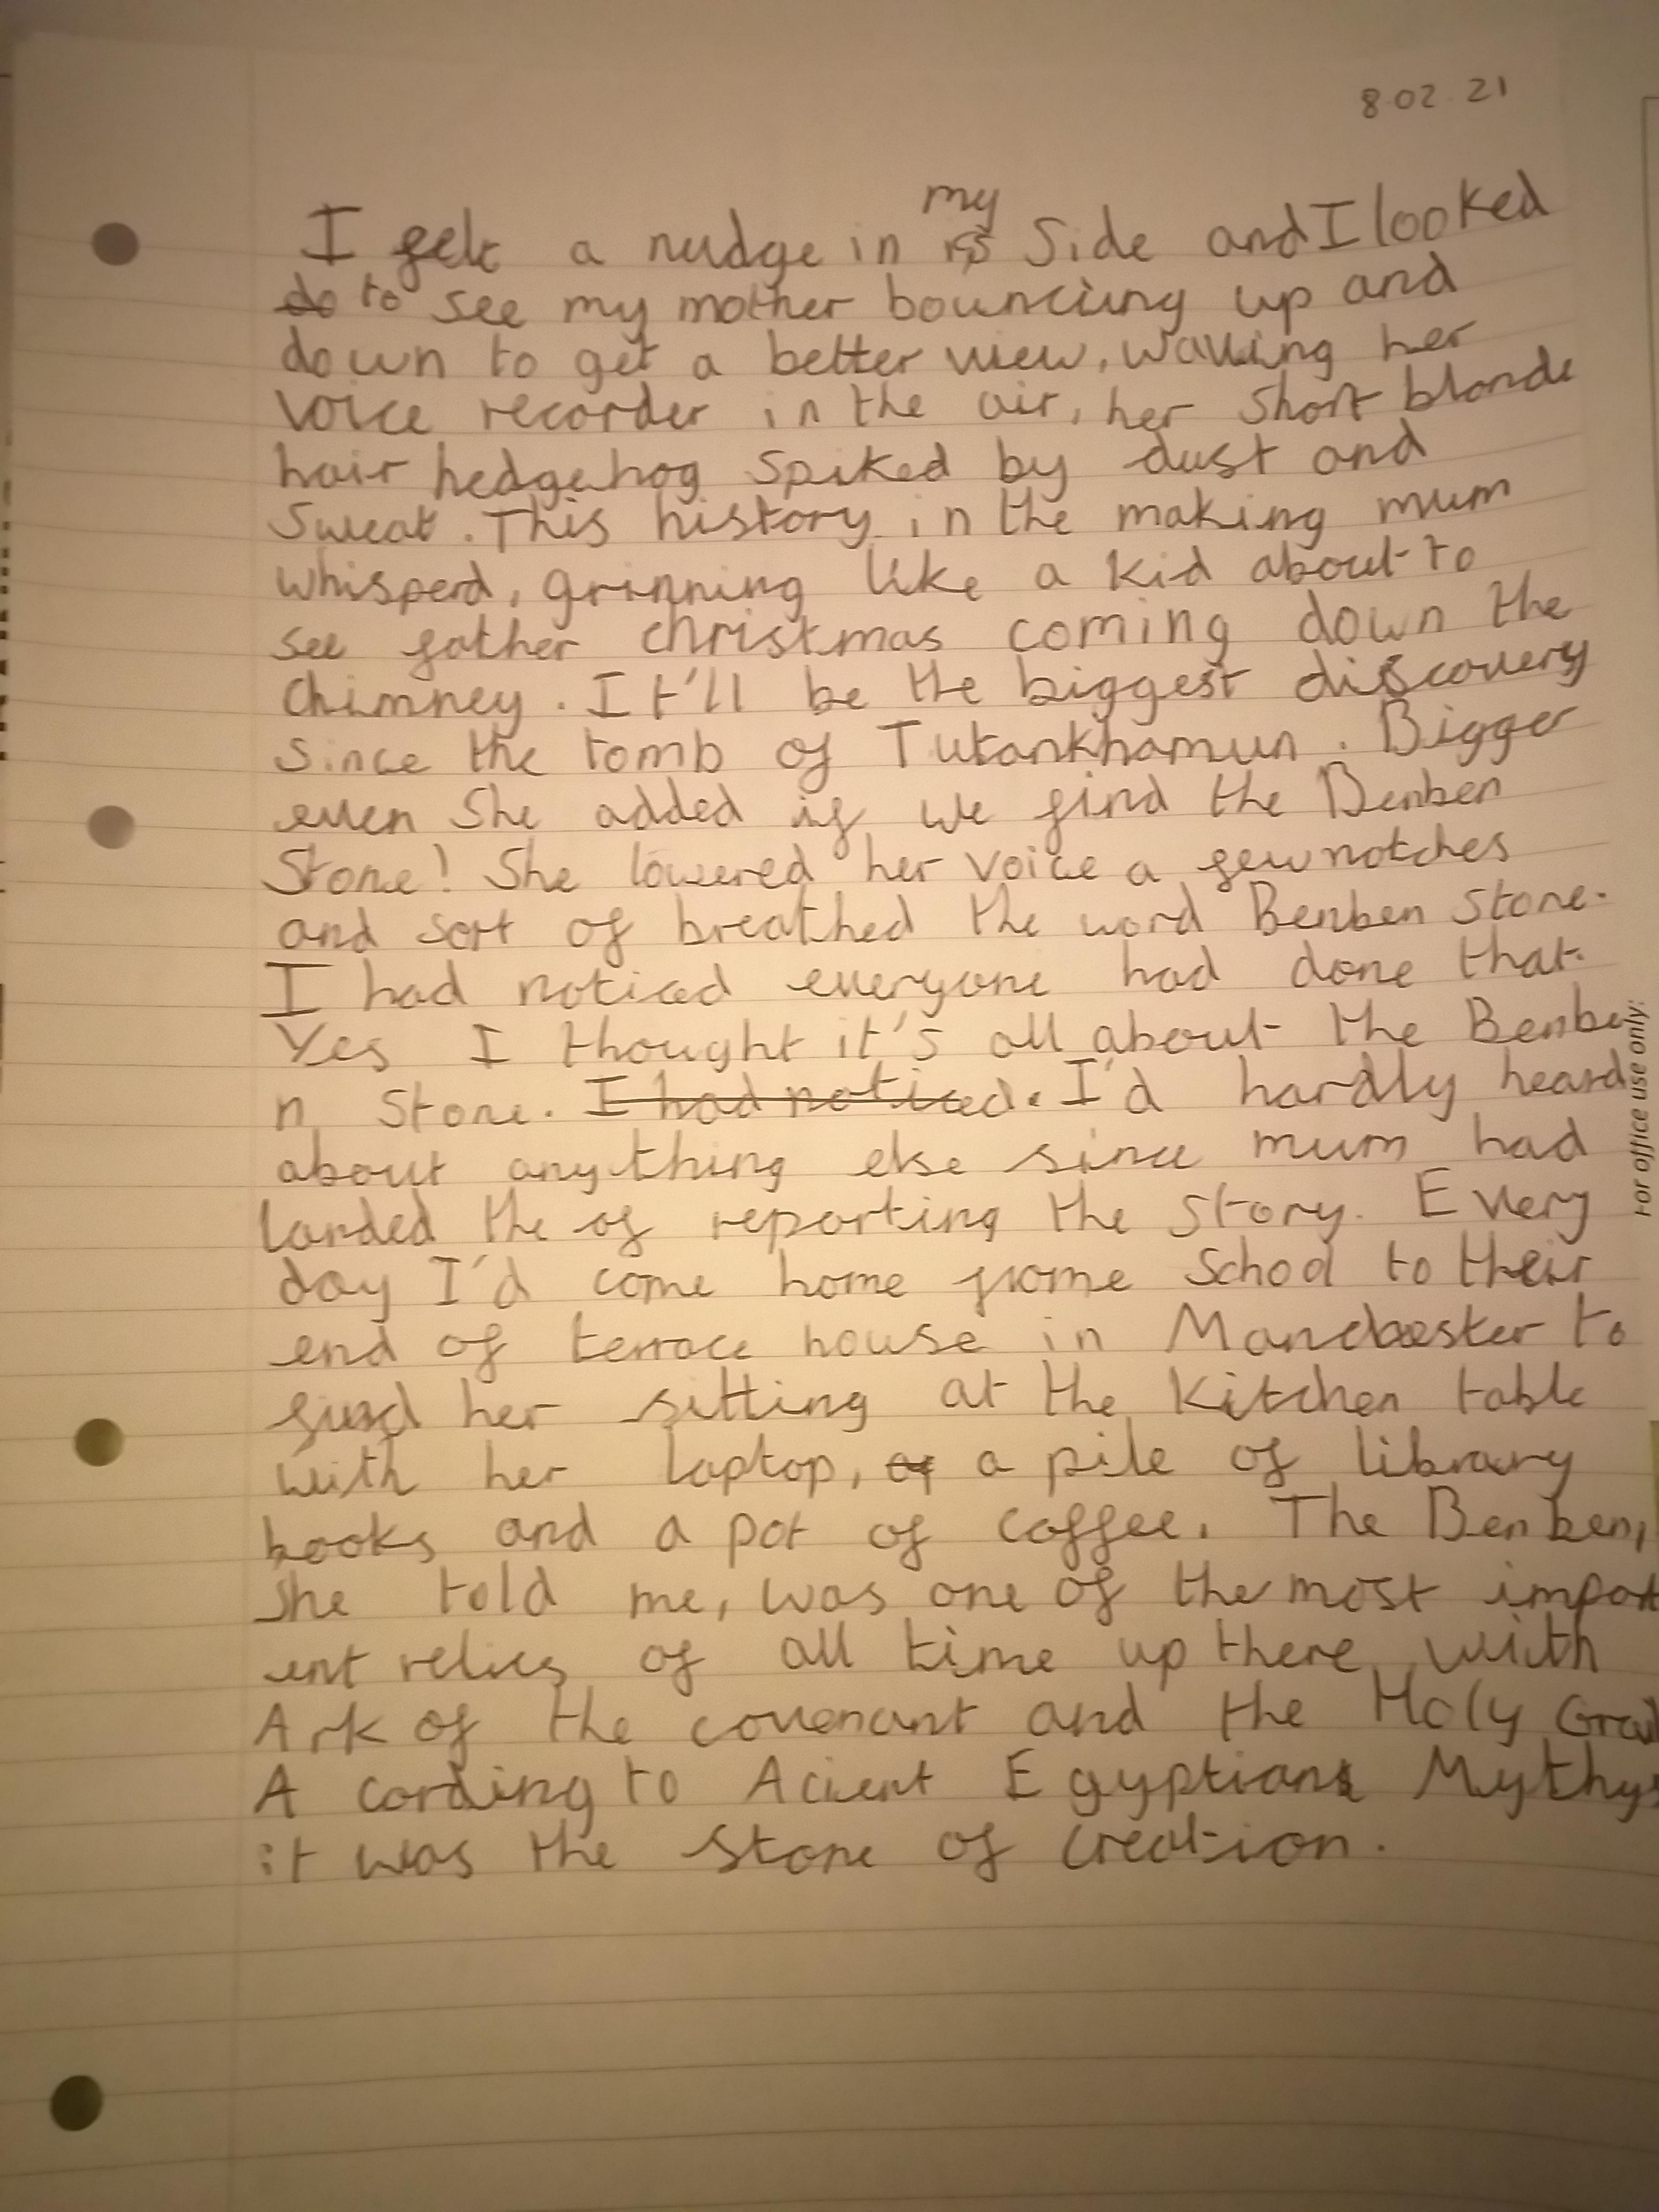 8.02.21
I felt a nudge in my side and I looked
do to see my mother bouncing up and
down to get a better view, waving her
Voice recorder in the air, her short blonde
hair hedgehog spiked by dust and
Sweat. This history in the making mum
whisperd, grinning like a kid about to
see father christmas coming down the
Chimney. It'll be the biggest discovery
since the tomb of Tutankhamun. Bigger
even She added if we find the Benben
Stone! She lowered her voice a few notches
and sort of breathed the word Benben Stone.
I had noticed everyone had done that.
Yes I thought it's all about the Benbe
n Stone. I had noticed. I'd hardly heard
about anything else since mum had
landed the of reporting the story. Every
day I'd come home frome School to their
end of terrace house in Manchester to
find her sitting at the kitchen table
with her laptop, of a pile of library
books and a pot of coffee. The Benben,
She told me, was one of the most import
ent relics of all time up there with
Ark of the covenant and the Holy Grail
A cording to Acient Egyptians Mythys
it was the stone of creation.
For office use only: